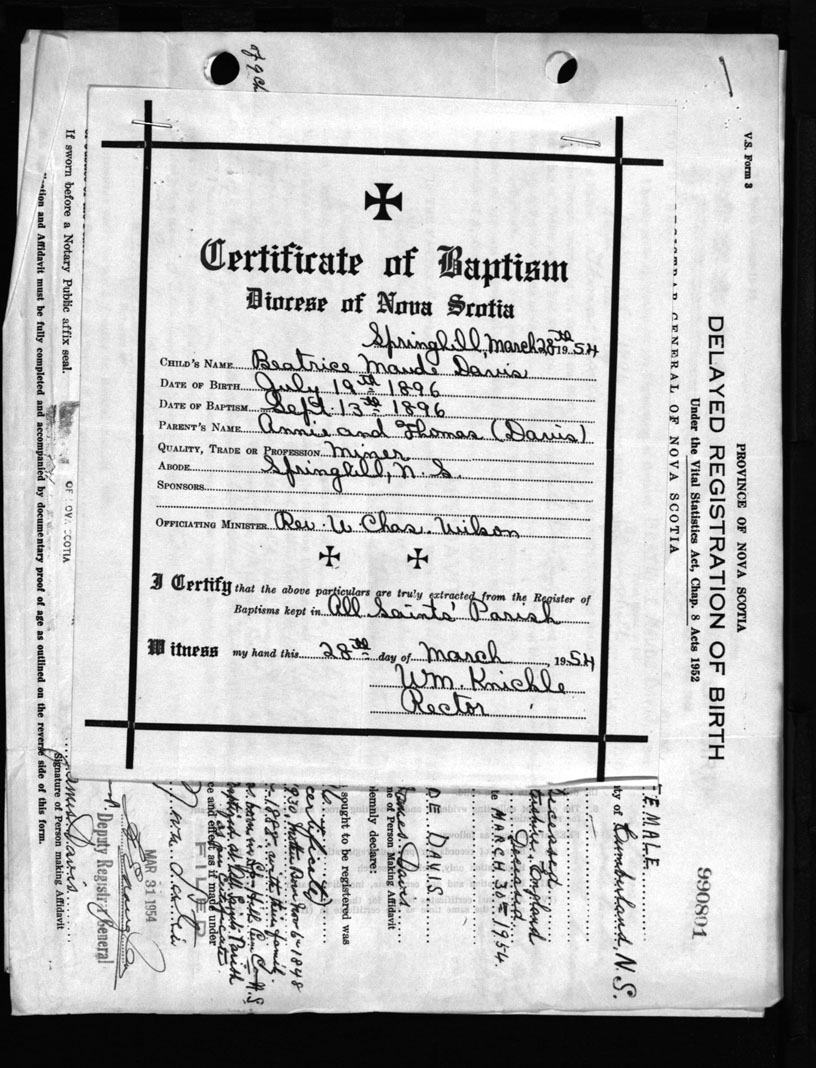 Certificate of Baptism
Diocese of Nova Scotia
Springhill, March 28th 1954
CHILD'S NAME Beatrice Maude Davis
DATE OF BIRTH July 19th 1896
DATE OF BAPTISM Sept. 13th 1896
PARENT'S NAME Annie and Thomas (Davis)
QUALITY, TRADE OR PROFESSION Miner
ABODE Springhill, N. S.
SPONSORS
OFFICIATING MINISTER Rev. W. Chas. Wilson
I Certify that the above particulars are truly extracted from the Register of
Baptisms kept in All Saints' Parish
Witness my hand this 28th day of March, 1954
WM. Knichle
Rector
V.S. Form 3
PROVINCE OF NOVA SCOTIA
DELAYED REGISTRATION OF BIRTH
Under the Vital Statistics Act, Chap. 8 Acts 1952
REGISTRAR GENERAL OF NOVA SCOTIA
990891
EMALE.
ty of Cumberland, N.S.
Deceased
England
Deceased
te MARCH 30th 1954.
DE DAVIS
James Davis
me of Person making Affidavit
lemnly declare:
sought to be registered was
certificate)
1848
baptized at All Saints Parish
ce and effect as if made under
FILED
MAR 31 1954
Deputy Registrar General
James Davis
Signature of Person making Affidavit
OF NOVA SCOTIA
If sworn before a Notary Public affix seal.
ation and Affidavit must be fully completed and accompanied by documentary proof of age as outlined on the reverse side of this form.
of 9 ch